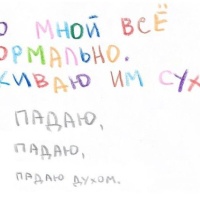 О МНОЙ ВСЁ
ОРМАЛЬНО.
КИВАЮ ИМ СУХ
ПАДАЮ,
ПАДАЮ,
ПАДАЮ ДУХОМ.